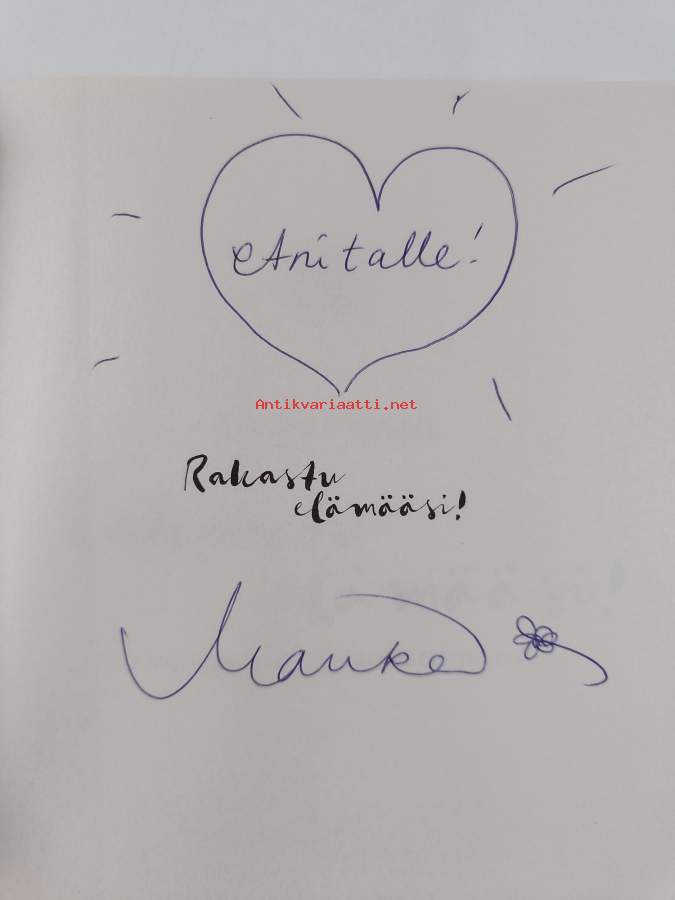 Anitalle!
Antikvariaatti.net
Rakastu
elämääsi!
Manke